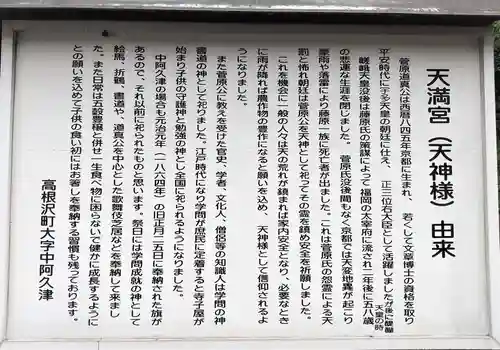 天満宮（天神様）由来
菅原道真公は西暦八四五年京都に生まれ、若くして文章博士の資格を取り
平安時代に宇多天皇の朝廷に仕え、正三位右大臣として活躍しました（後に醍醐天皇の時
嵯峨天皇没後は藤原氏の策謀によって福岡の太宰府に流され二年後に五八歳
の悲運な生涯を閉じました。菅原氏没後間もなく京都では天変地異が起こり
豪雨や落雷により藤原一族に死亡者が出ました。これは菅原氏の怨霊による天
罰と怖れ朝廷は菅原公を天神として祀ってその霊を鎮め安全を祈願しました。
これを機会に一般の人々は天の荒れが鎮まれば家内安全となり、必要なとき
に雨が降れば農作物の豊作になると願いを込め、天神様として信仰されるよ
うになりました。
また菅原公に教えを受けた官吏、学者、文化人、僧侶等の知識人は学問の神
書道の神として祀りました。江戸時代になり学問が庶民に定着すると寺子屋が
始まり子供の守護神と勉強の神とし全国に祀られるようになりました。
中阿久津の場合も元治元年（一八六四年）の旧正月二五日に奉納された旗が
あるので、それ以前に祀られたものと思います。祭日には学問成就の神として
絵馬、折鶴、書道や、道真公を中心とした歌舞伎芝居などを奉納して来まし
た。また日常は五穀豊穣と併せ一生食べ物に困らないで健かに成長するように
との願いを込めて子供の食い初にはお箸しを奉納する習慣も残っております。
高根沢町大字中阿久津